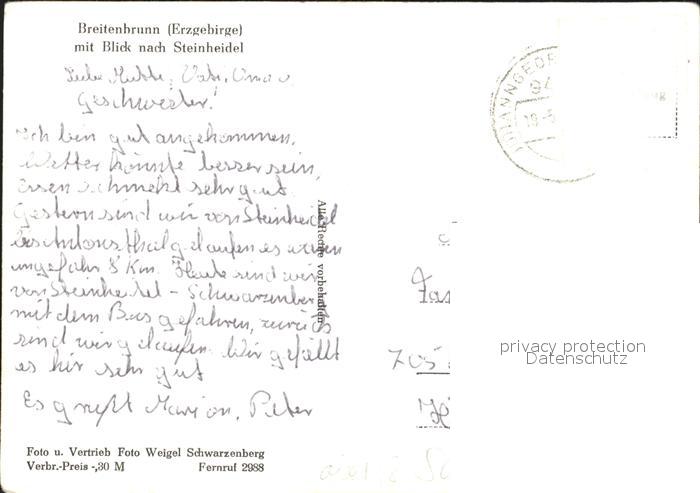 Breitenbrunn (Erzgebirge)
mit Blick nach Steinheidel
Liebe Mutti, Vati, Oma u
Geschwister!
Ich bin gut angekommen,
Wetter könnte besser sein,
Essen schmekt sehr gut.
Gestern sind wir von Steinheidel
bis Antonsthal gelaufen es waren
ungefähr 8 Km. Heute sind wir
von Steinheidel - Schwarzenberg
mit dem Bus gefahren, zurück
sind wir gelaufen. Wir gefällt
es hir sehr gut
Es grüßt Marion, Peter
Alle Rechte vorbehalten
Foto u. Vertrieb Foto Weigel Schwarzenberg
Verbr.-Preis -,30 M Fernruf 2988
JOHANNGEOR
Fas
privacy protection
Datenschutz